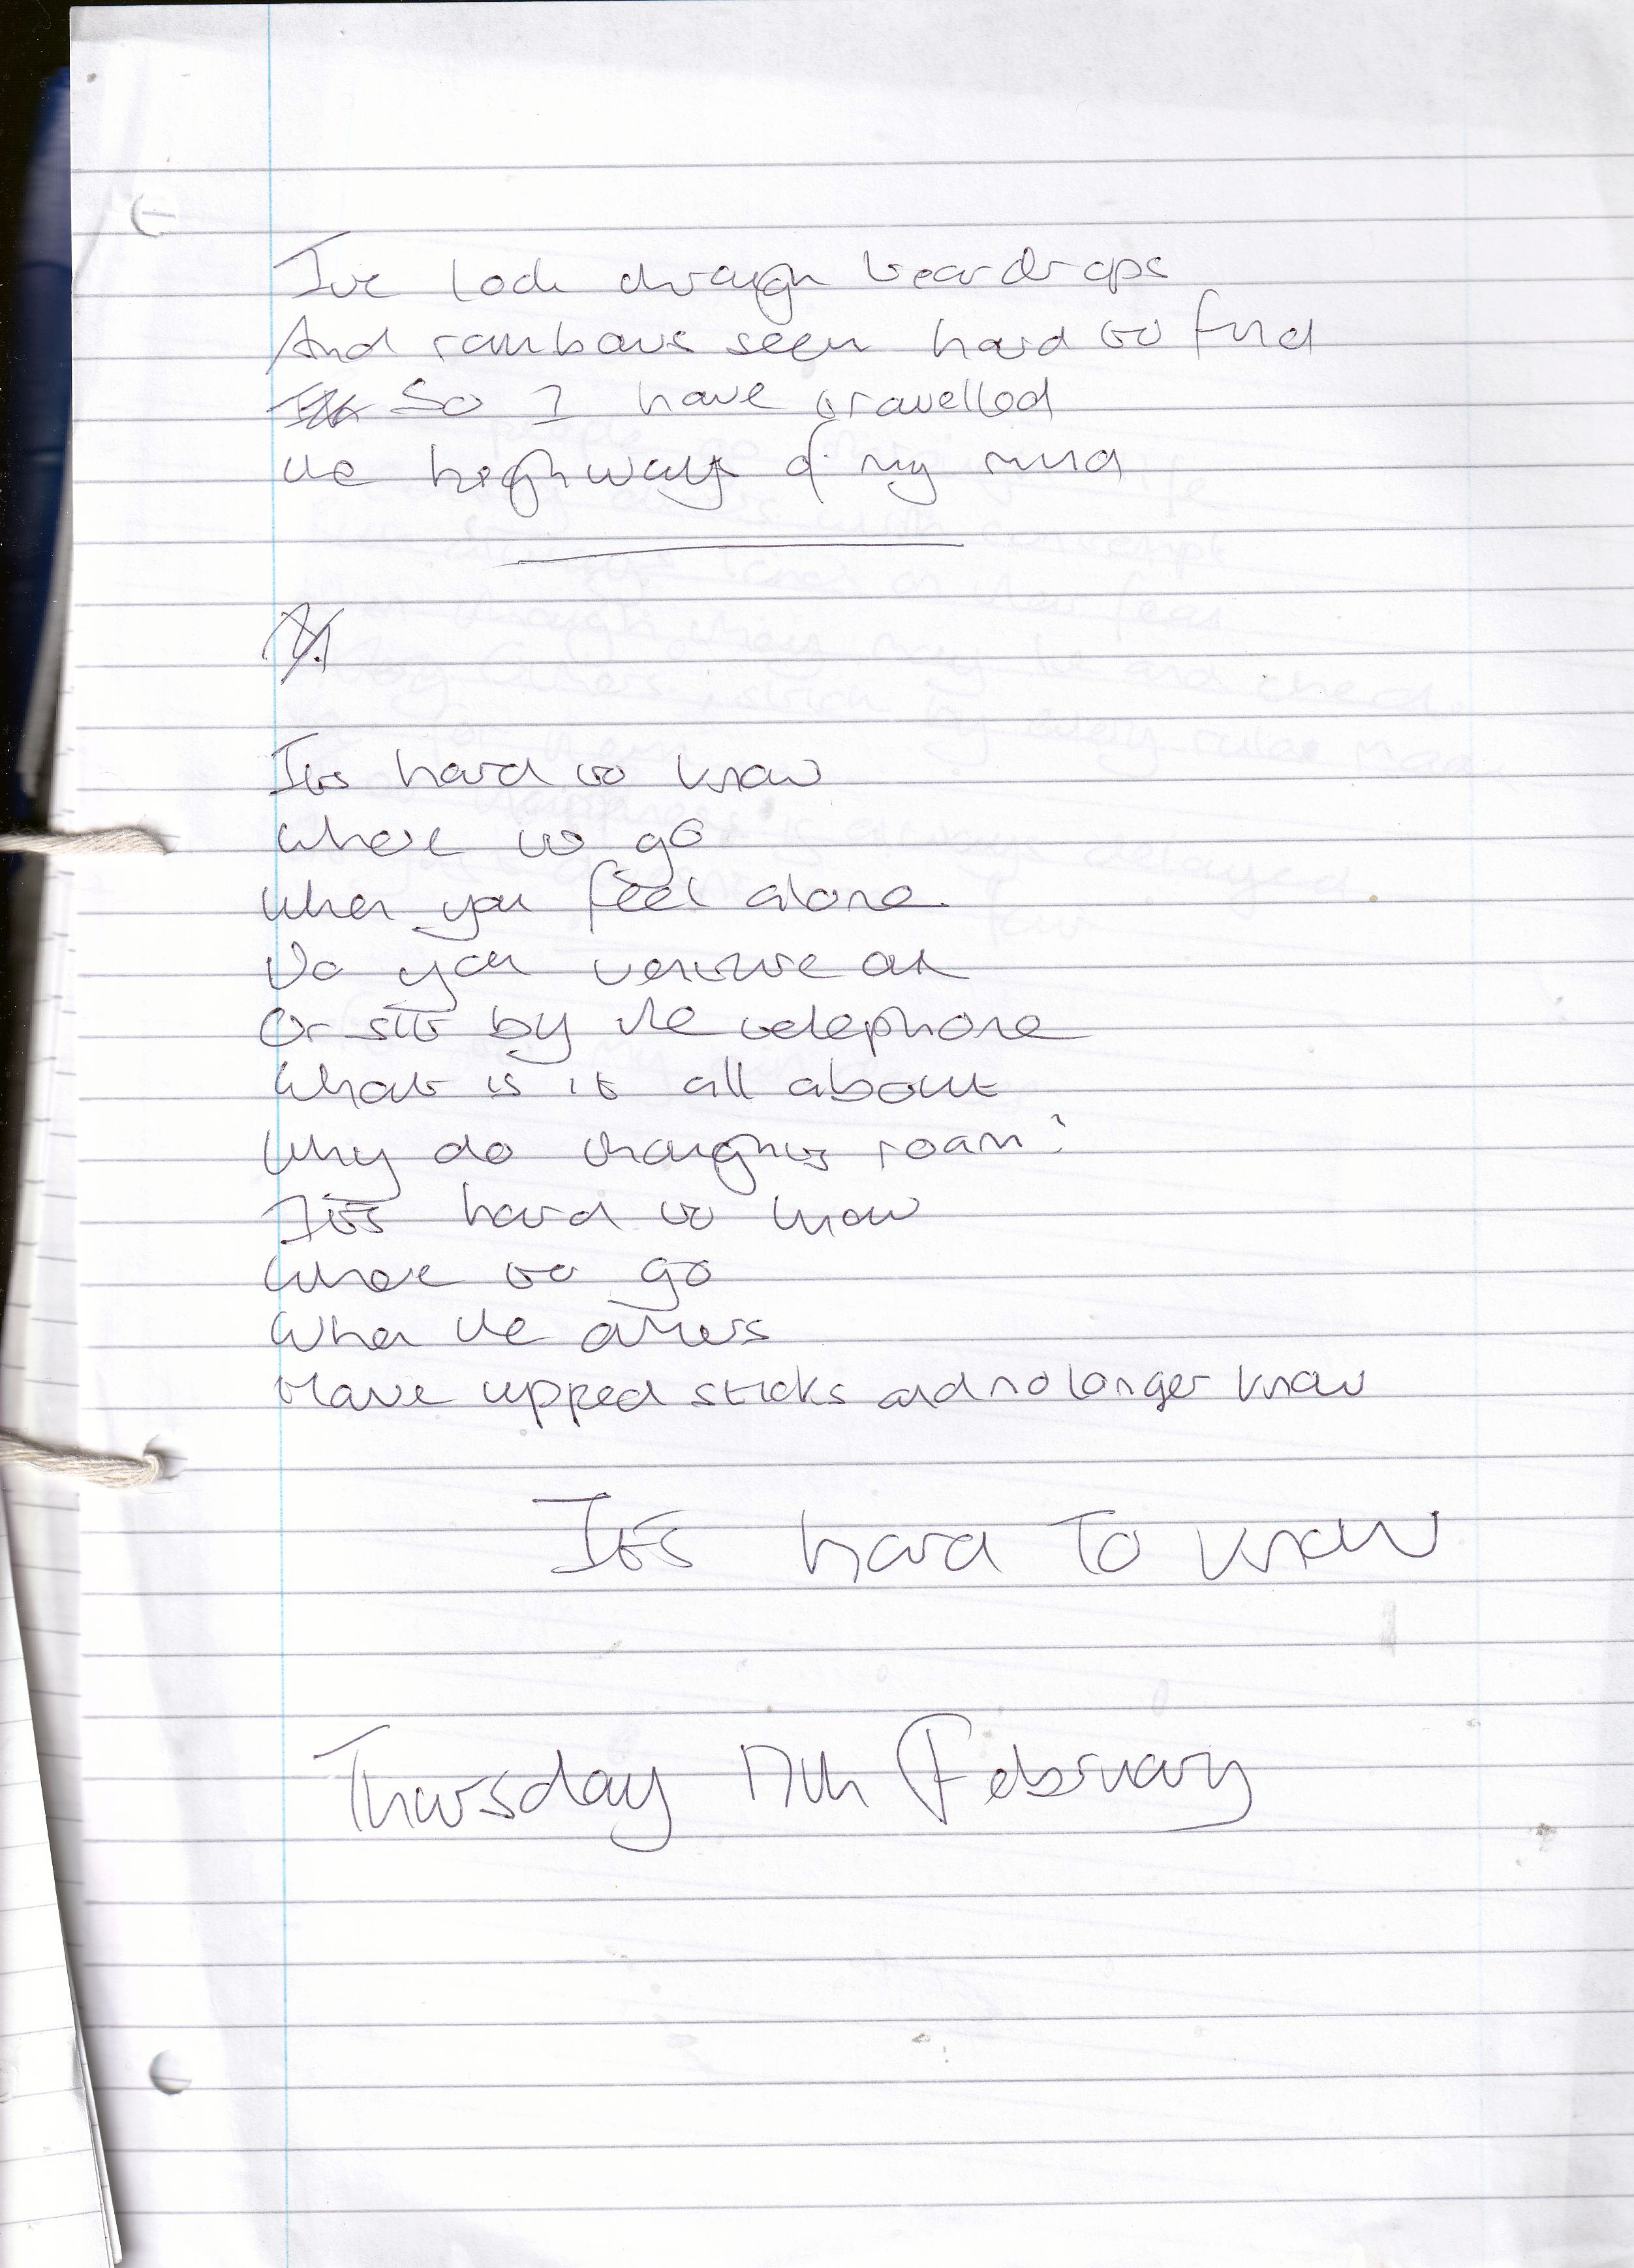 I've look through teardrops
And rainbows seem hard to find
So I have travelled
the highways of my mind
Its hard to know
where to go
when you feel alone.
Do you venture out
Or sit by the telephone
What is it all about
Why do thoughts roam?
It's hard to know
where to go
When the others
Have upped sticks and no longer know
It's hard To know
Thursday 17th February